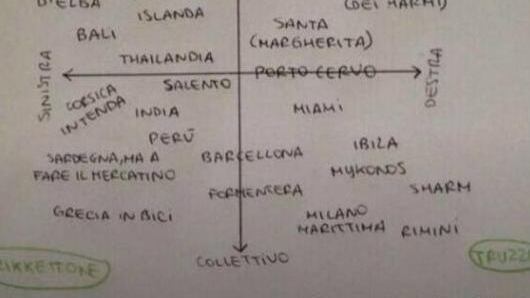 D'ELBA
(DEI MARMI)
ISLANDA
SANTA
(MARGHERITA)
BALI
THAILANDIA
SINISTRA
PORTO CERVO
DESTRA
SALENTO
CORSICA
INTENDA
INDIA
MIAMI
PERÙ
IBIZA
SARDEGNA, MA A
FARE IL MERCATINO
BARCELLONA
MYKONOS
FORMENTERA
SHARM
GRECIA IN BICI
MILANO
MARITTIMA
RIMINI
COLLETTIVO
RIKKETTONE
TRUZZ